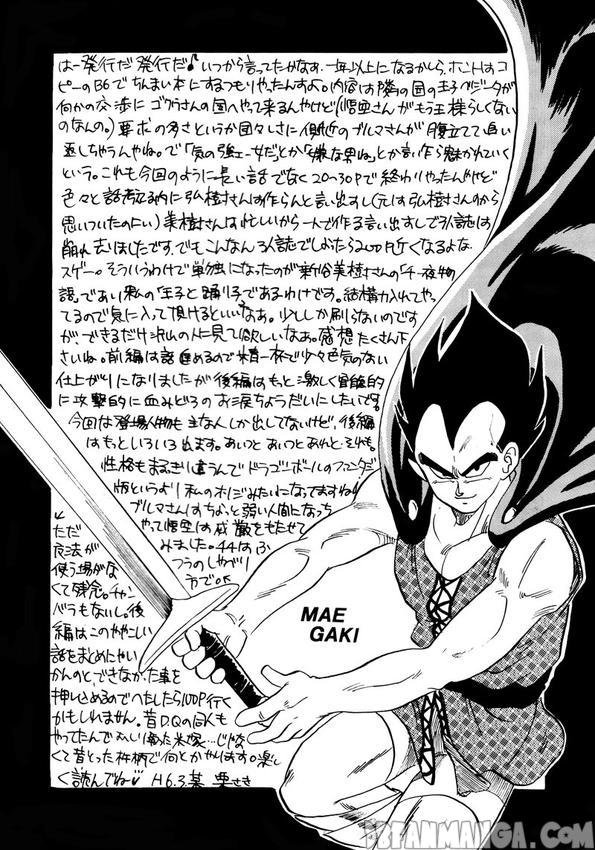 はー発行だ発行だ♪いつから言ってたかなす、一年以上になるかしら。ホントはコ
ピーのB6でちんまい本にするつもりやったんすよ。内容は隣の国の王子ベジータが
何かの交渉に ゴクウさんの国へやって来るんやけど(悟空さんがもう王様らしくない
のなんの。)要求の多さというか図々しさに側近のブルマさんが腹立てて追い
返しちゃうんやね。で「気の強ェー女だ」とか「嫌な男ね」とか言い作ら魅かれていく
という。これも今回のように長い話でなく20〜30Pで終わりやったんやけど
色々と話考える内に弘樹さんは作らんと言い出すし(元は弘樹さんから
思いついたのにい)美樹さんは忙しいから一人で作る言い出すしで3人誌は
崩れ去いましたです。でもこんなん3人誌でしおたら200P近くなるよな
スゲー。そういうわけで単独になったのが新谷美樹さんの「千一夜物
語」であり私の「王子と踊り子」であるわけです。結構力入れてやっ
てるので気に入って頂けるといいなあ。少ししか刷らないのです
が、できるだけ沢山の人に見て欲しいなあ。感想たくさん下
さいね。前編は話進めるので精一杯で少々色気のない
仕上がりになりましたが後編はもっと激しく官能的
に攻撃的に血みどろのお涙ちょうだいにしたいです。
今回は登場人物も主なんしか出してないけど、後編
はもっといろいろ出ます。あいつとあいつとあれと・それも。
性格もまるきり違うんでドラゴンボールのファンタジー
版というより私のオリジみたいになってますね
ブルマさんはちょっと弱い人間になっち
やって悟空は威厳をもたせて
みました。44はふ
つうのしゃべり
方でOK
ただ
魔法が
使う場がな
くて残念。チャン
バラもないし。後
編はこのややこしい
話をまとめにゃい
かんのとできなかった事を
押し込めるのでへたしたら100P行く
かもしれません。昔D.Q.の同人も
やってたんで
くて昔とった杵柄で何とかやりますの楽し
く読んでね H6.3.某
MAE
GAKI
DBFANMANGA.COM